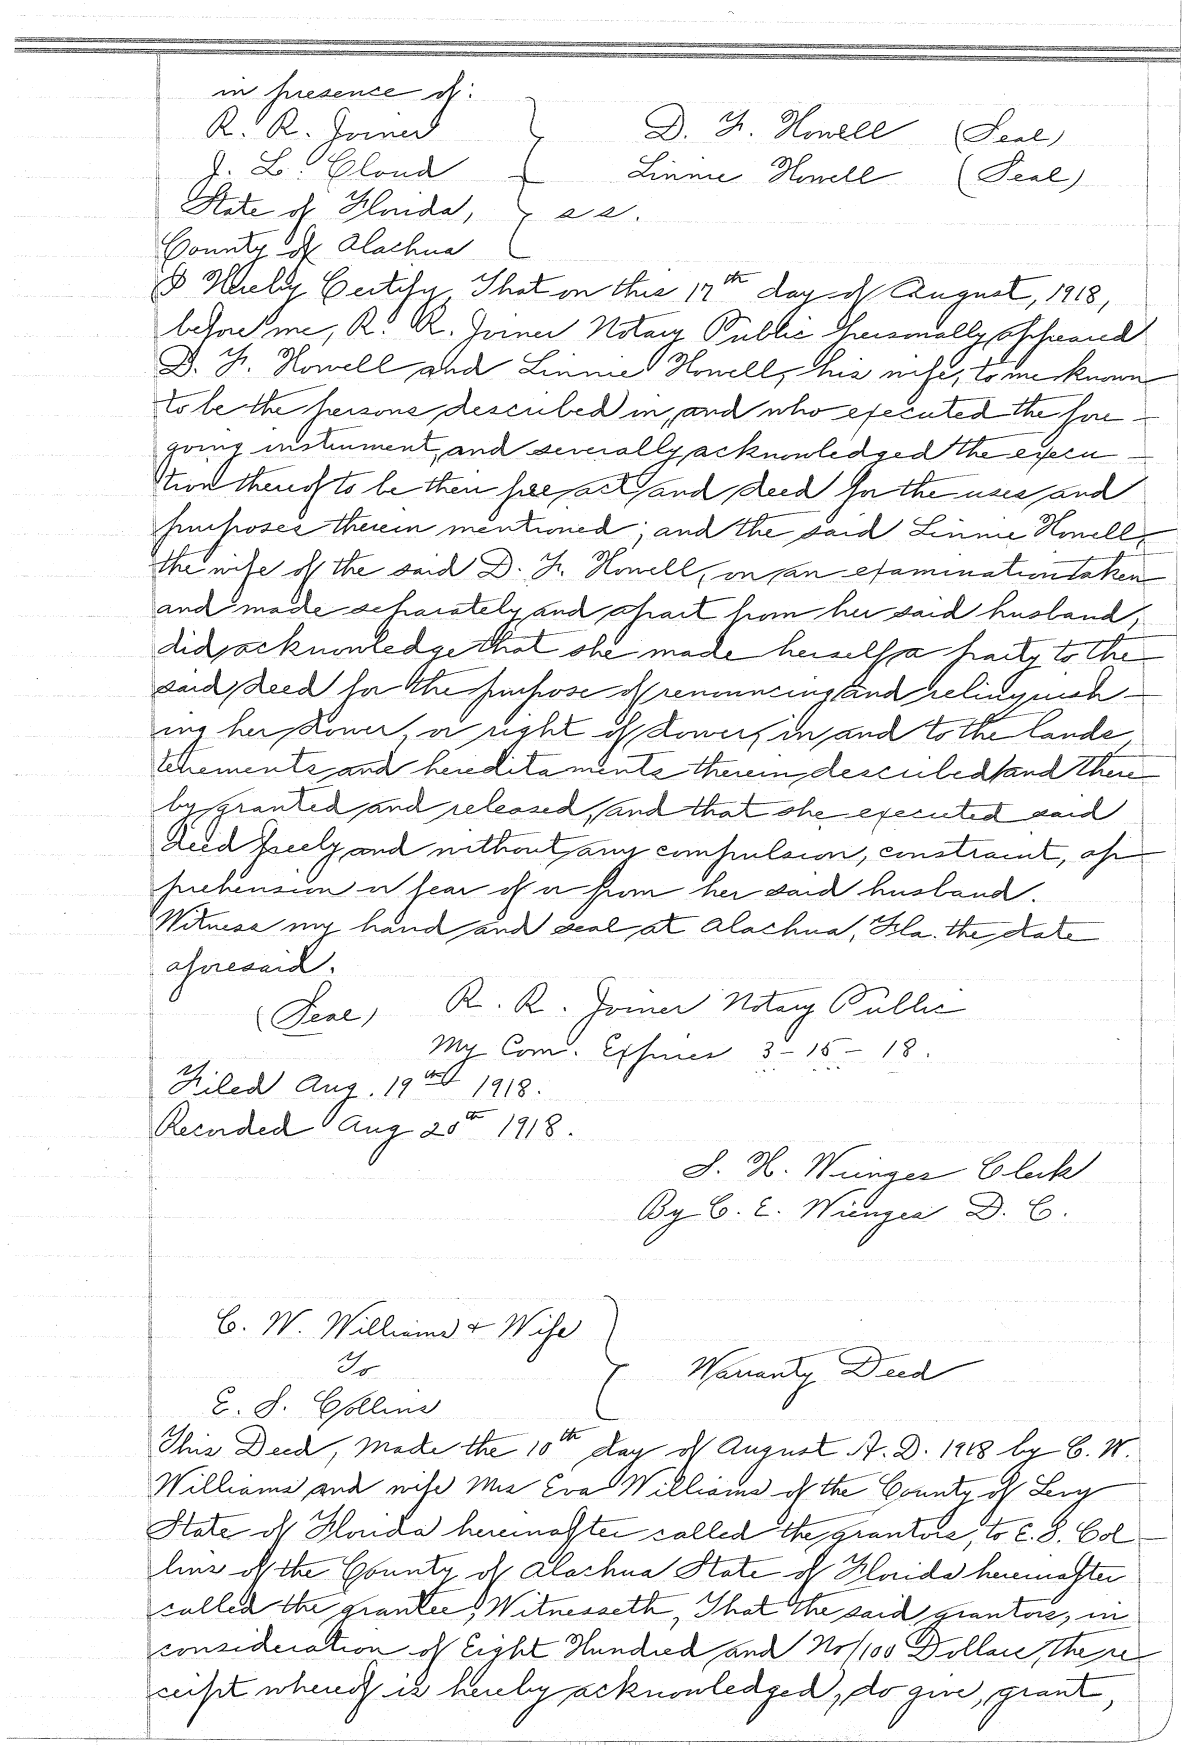 in presence of:
R. R. Joiner
D. F. Howell (Seal)
J. L. Cloud
Linnie Howell (Seal)
State of Florida, s s.
County of Alachua
I Hereby Certify, That on this 17th day of August, 1918,
before me, R. R. Joiner Notary Public personally appeared
D. F. Howell and Linnie Howell, his wife, to me known
to be the persons described in, and who executed the fore-
going instrument, and severally acknowledged the execu-
tion thereof to be their free act and deed for the uses and
purposes therein mentioned; and the said Linnie Howell,
the wife of the said D. F. Howell, on an examination taken
and made separately and apart from her said husband,
did acknowledge that she made herself a party to the
said deed for the purpose of renouncing and relinquish-
ing her dower, or right of dower, in and to the lands,
tenements and hereditaments therein described and there
by granted and released, and that she executed said
deed freely and without any compulsion, constraint, ap-
prehension or fear of or from her said husband.
Witness my hand and seal at Alachua, Fla. the date
aforesaid.
(Seal) R. R. Joiner Notary Public
My Com. Expires 3-15-18.
Filed Aug. 19th 1918.
Recorded Aug 20th 1918.
S. H. Wienges Clerk
By C. E. Wienges D. C.
C. W. Williams + Wife
To
Warranty Deed
E. S. Collins
This Deed, Made the 10th day of August A. D. 1918 by C. W.
Williams and wife Mrs Eva Williams of the County of Levy
State of Florida hereinafter called the grantors, to E. S. Col-
lins of the County of Alachua State of Florida hereinafter
called the grantee, Witnesseth, That the said grantors, in
consideration of Eight Hundred and No/100 Dollars, the re-
ceipt whereof is hereby acknowledged, do give, grant,